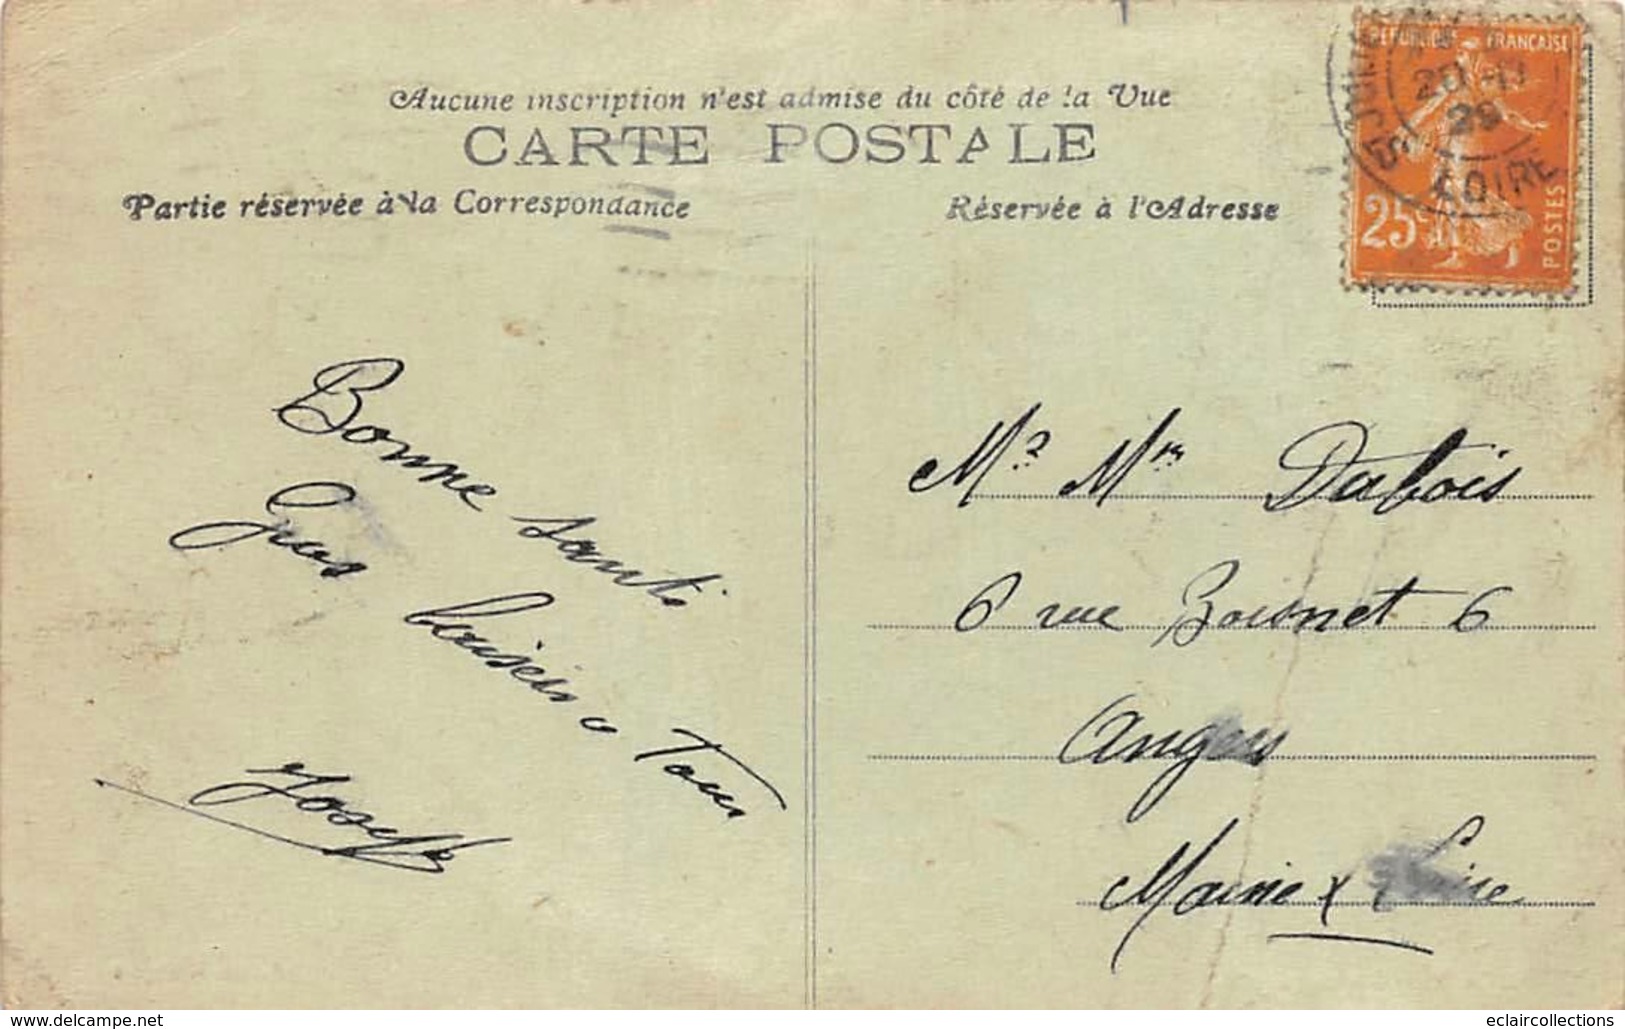 Aucune inscription n'est admise du côté de la Vue
CARTE POSTALE
Partie réservée à la Correspondance
Réservée à l'Adresse
REPUBLIQUE FRANCAISE
25c
POSTES
29
LOIRE
Bonne santé
Gros baisers a Tous
Joseph
Mr Mm Dubois
6 rue Boisnet 6
Angers
Maine & Loire
www.delcampe.net
eclaircollections